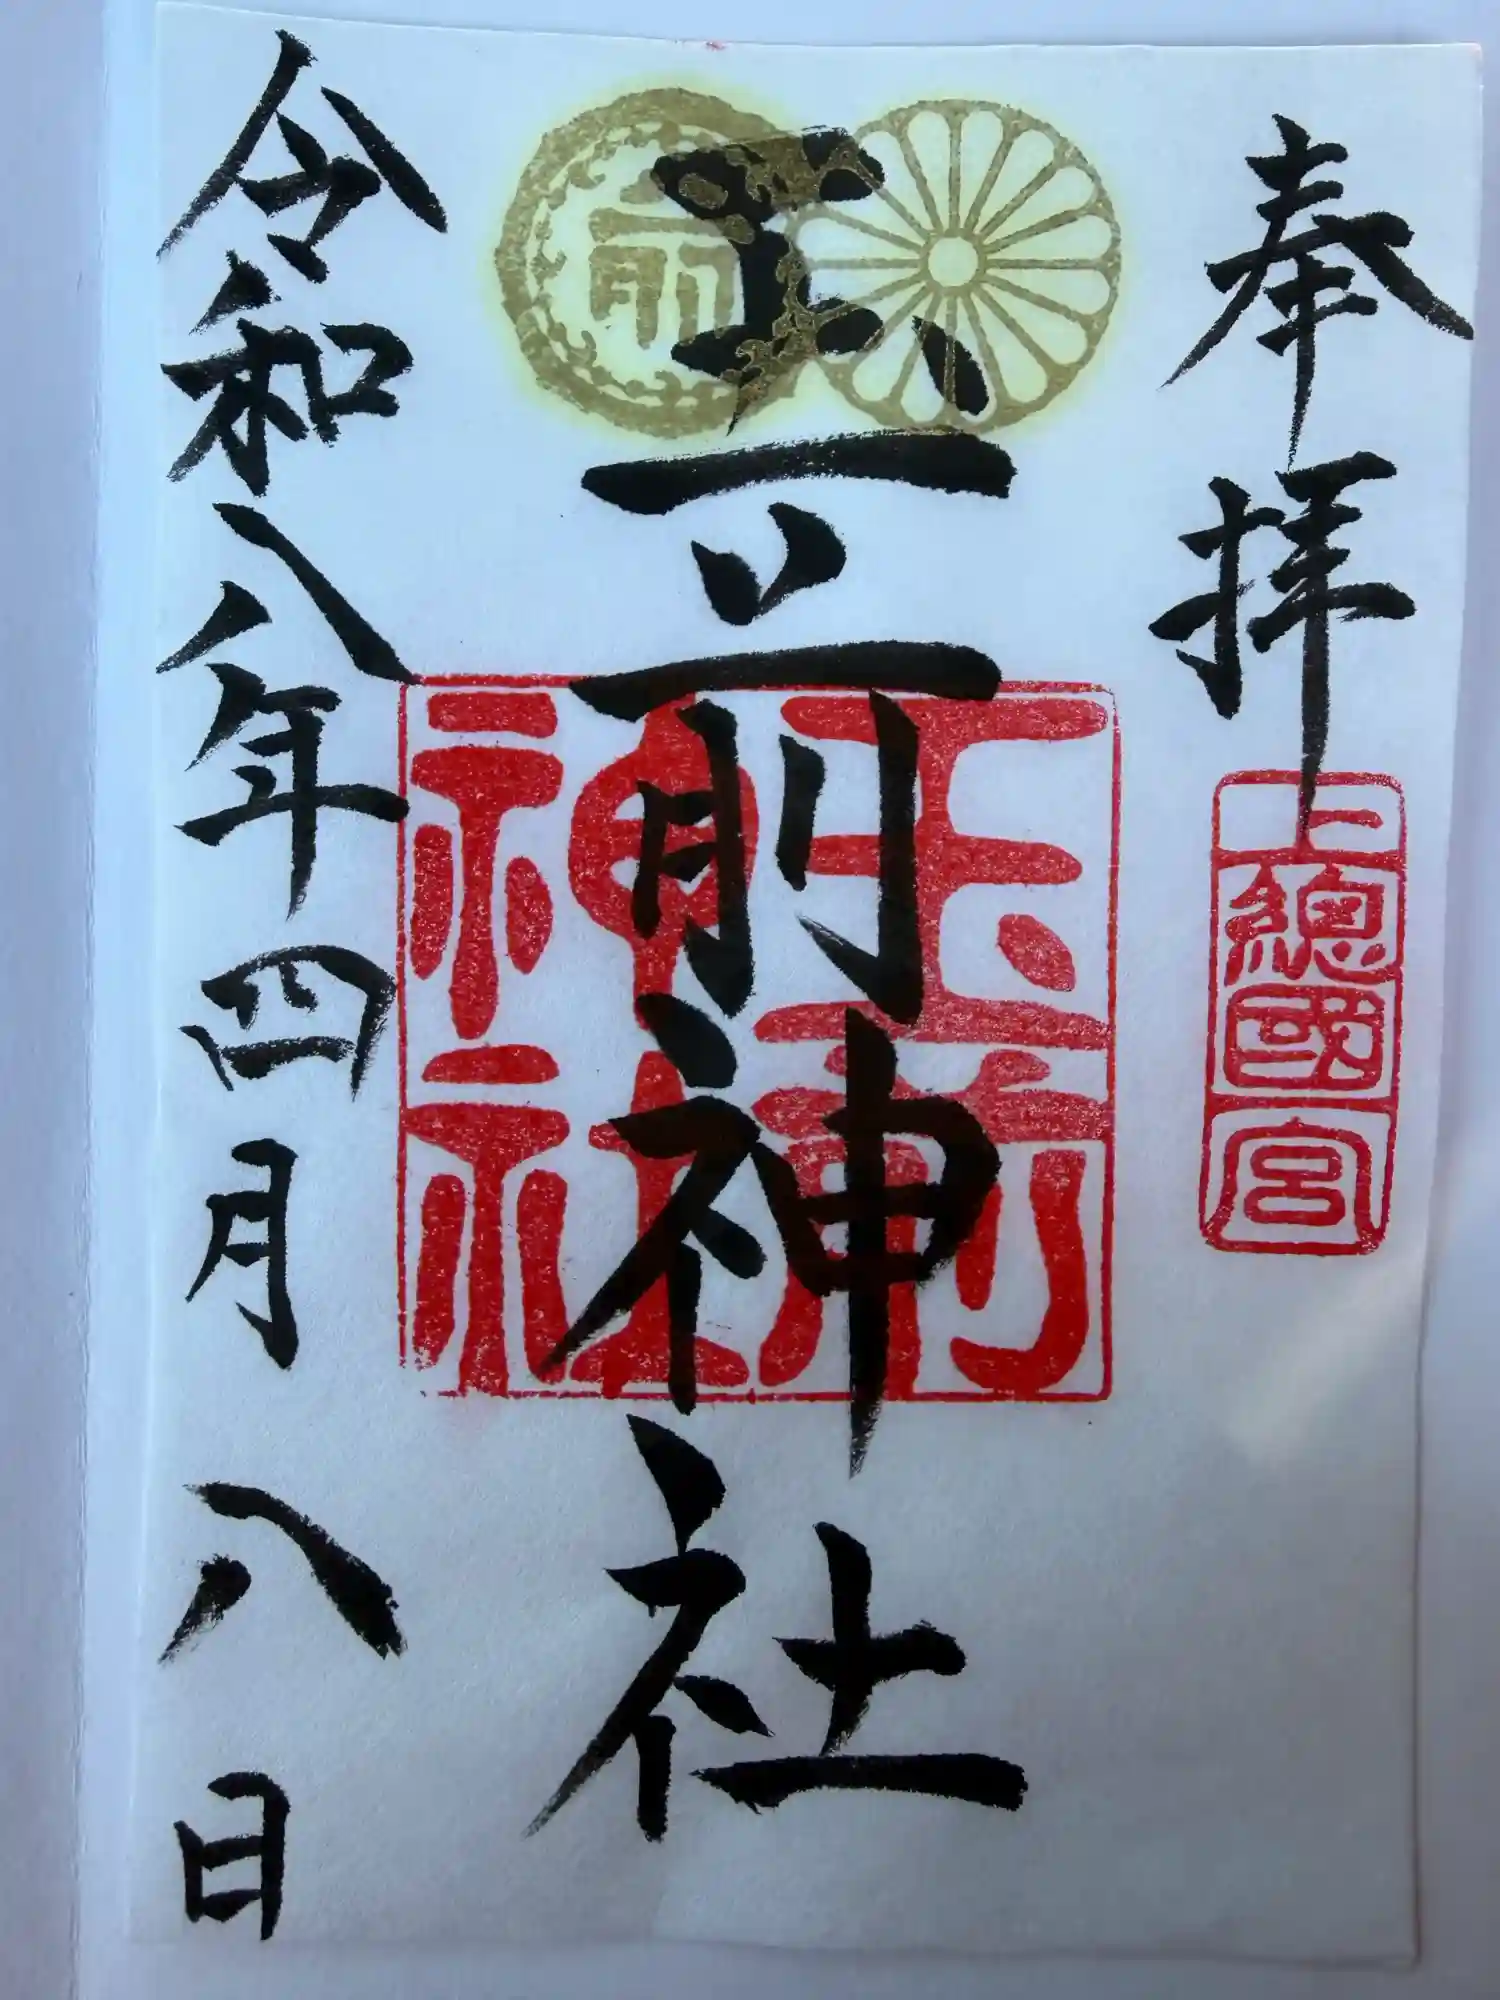 奉拝
上總國一宮
玉前神社
玉前
神社
前
令和八年四月八日